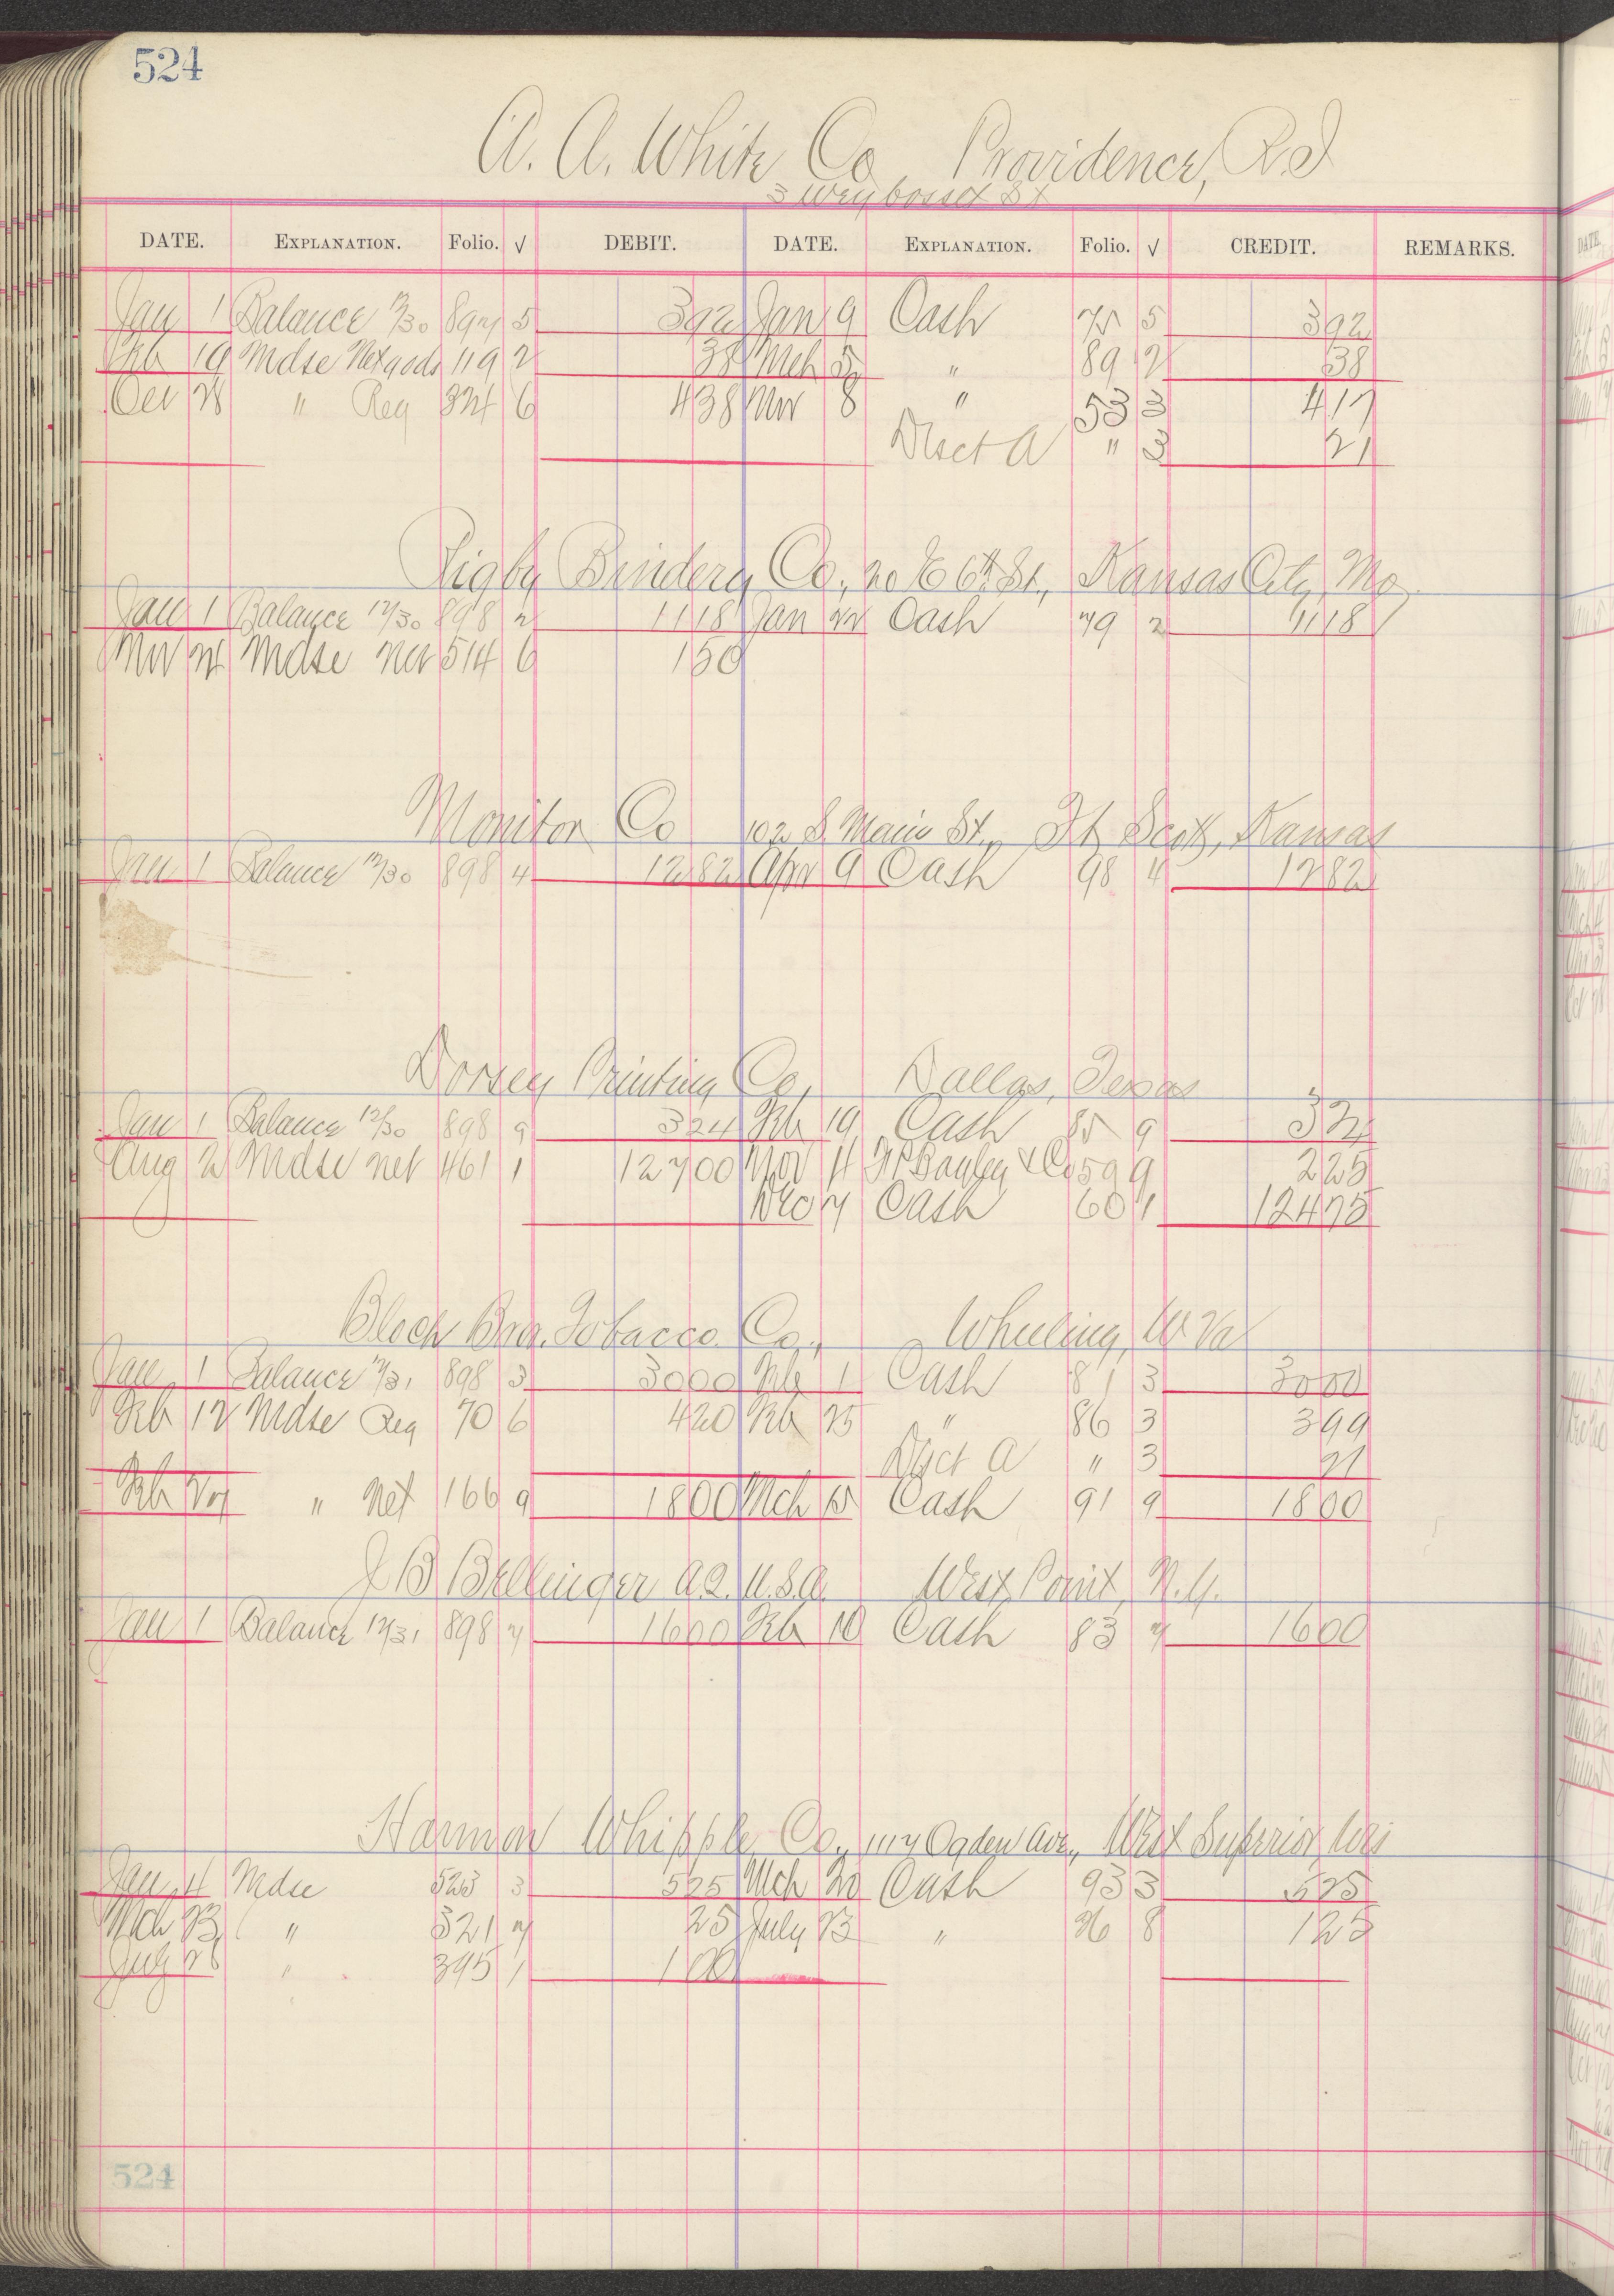 524
A. A. White Co, Providence, R.I
3 Weybosset St
DATE. EXPLANATION. Folio. √ DEBIT. DATE. EXPLANATION. Folio. √ CREDIT. REMARKS.
Jan 1 Balance 12/30 897 5 392 Jan 9 Cash 75 5 392
Feb 19 Mdse Net goods 119 2 38 Mch 5 " 89 2 38
Oct 28 " Reg 324 6 438 Nov 8 " 53 3 417
Disct A " 3 21
Rigby Bindery Co, 20 E 6th St., Kansas City, Mo.
Jan 1 Balance 12/30 898 2 1118 Jan 22 Cash 79 2 1118
Nov Mdse Net 514 6 150
Monitor Co 102 S. Main St., Ft Scott, Kansas
Jan 1 Balance 12/30 898 4 1282 Apr 9 Cash 98 4 1282
Dorsey Printing Co, Dallas, Texas
Jan 1 Balance 12/30 898 9 324 Feb 19 Cash 85 9 324
Aug 2 Mdse net 461 1 12700 Nov 4 Bayley & Co 59 9 225
Dec 7 Cash 60 1 12475
Bloch Bro. Tobacco Co., Wheeling, W. Va
Jan 1 Balance 12/31 898 3 3000 Feb 1 Cash 81 3 3000
Feb 12 Mdse Reg 70 6 420 Feb 25 " 86 3 399
Disct A " 3 21
Feb 27 " Net 166 9 1800 Mch 15 Cash 91 9 1800
J B Bellinger A.Q. U.S.A. West Point, N.Y.
Jan 1 Balance 12/31 898 7 1600 Feb 10 Cash 83 7 1600
Harmon Whipple Co., 1117 Ogden Ave., West Superior, Wis
Jan 4 Mdse 523 3 525 Mch 20 Cash 93 3 525
Mch 23 " 321 7 25 July 23 " 26 8 125
July 26 " 395 1 100
524